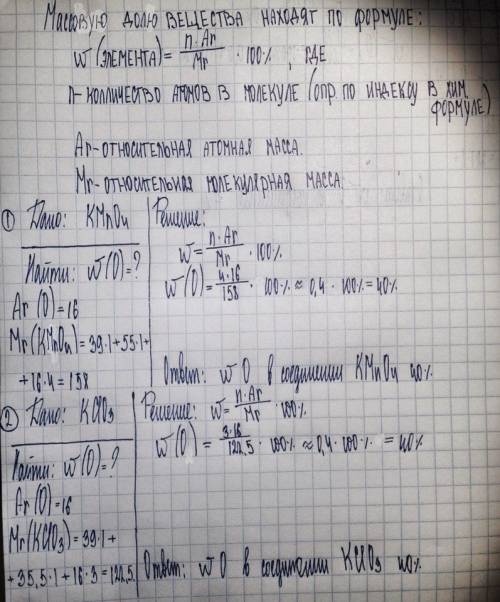 Массовую долю вещества находят по формуле:
w(элемента) = n·Ar/Mr · 100%, где
n - колличество атомов в молекуле (опр. по индексу в хим. формуле)
Ar - относительная атомная масса.
Mr - относительная молекулярная масса.
① Дано: KMnO₄
Найти: w(O)=?
Ar(O)=16
Mr(KMnO₄)=39·1+55·1+
+16·4=158
Решение:
w = n·Ar/Mr · 100%
w(O) = 4·16/158 · 100% ≈ 0,4 · 100% = 40%
Ответ: w O в соединении KMnO₄ 40%
② Дано: KClO₃
Найти: w(O)=?
Ar(O)=16
Mr(KClO₃)=39·1+
+35,5·1+16·3=122,5.
Решение: w = n·Ar/Mr · 100%
w(O) = 3·16/122,5 · 100% ≈ 0,4·100% = 40%
Ответ: w O в соединении KClO₃ 40%